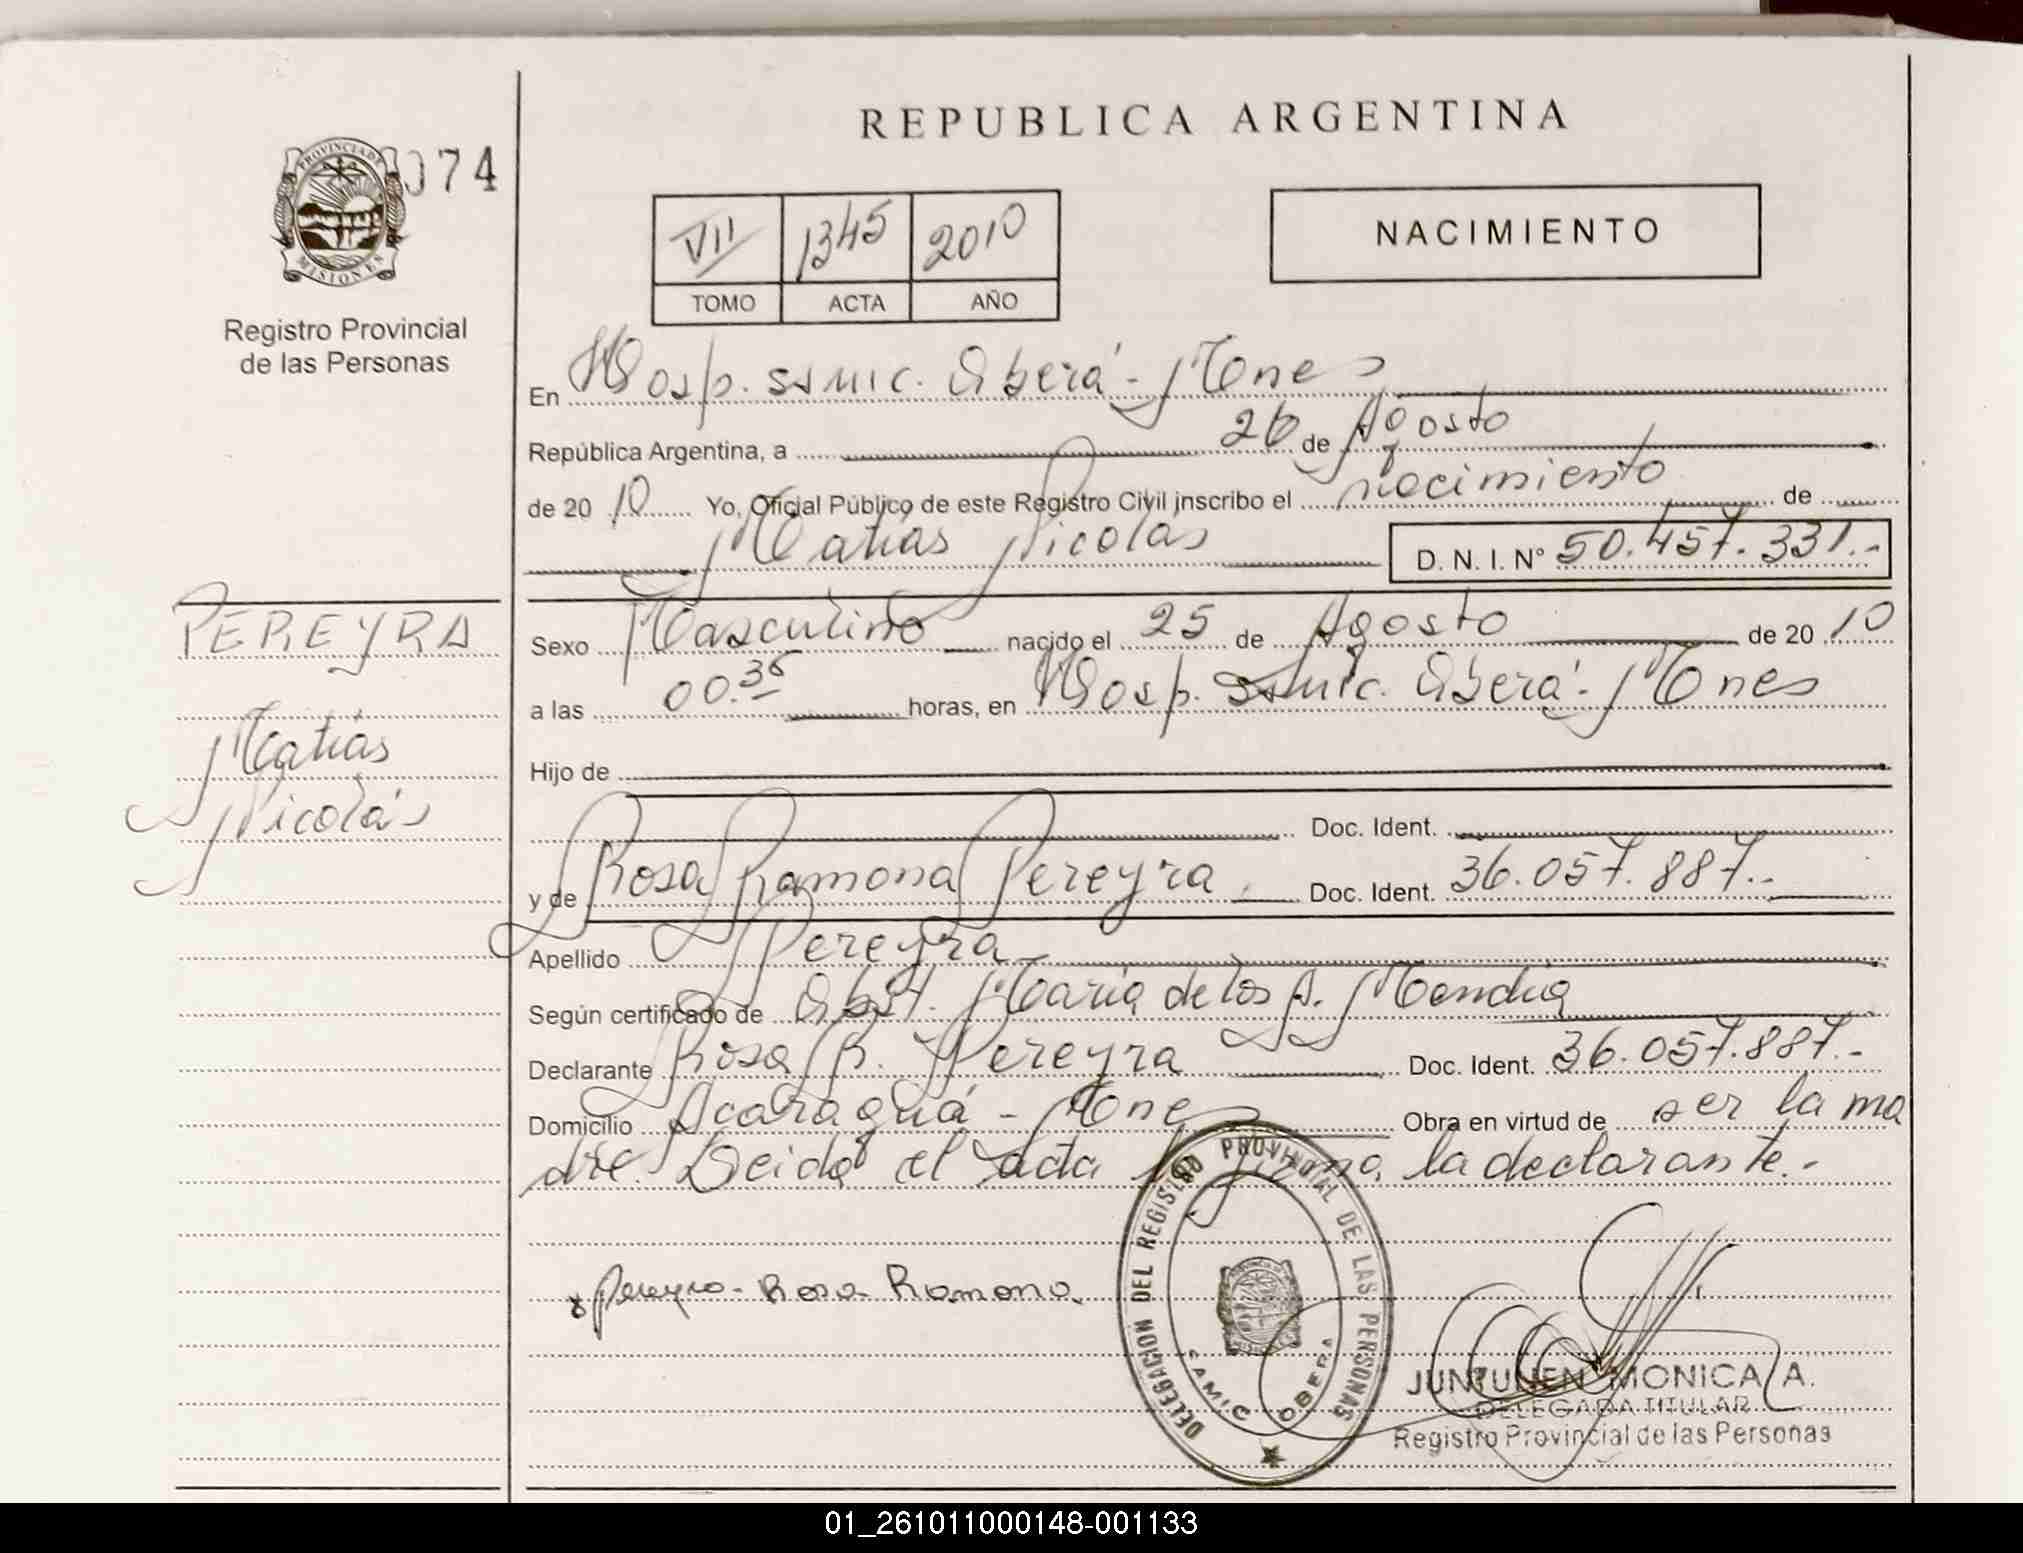 REPUBLICA ARGENTINA
PROVINCIA DE
MISIONES
074
Registro Provincial
de las Personas
VII 1345 2010
TOMO ACTA AÑO
NACIMIENTO
En Hosp. SAMIC. Oberá - Mnes
República Argentina, a 26 de Agosto
de 2010 Yo, Oficial Público de este Registro Civil inscribo el nacimiento de
Matías Nicolás D. N. I. N° 50.457.331.-
PEREYRA
Matías
Nicolás
Sexo Masculino nacido el 25 de Agosto de 2010
a las 00.35 horas, en Hosp. SAMIC. Oberá - Mnes
Hijo de
Doc. Ident.
y de Rosa Ramona Pereyra Doc. Ident. 36.057.887.-
Apellido Pereyra
Según certificado de Obst. María de los A. Mendia
Declarante Rosa R. Pereyra Doc. Ident. 36.057.887.-
Domicilio Acaraguá - Mnes Obra en virtud de ser la ma
dre. Leida el acta la firma la declarante.-
Pereyra Rosa Ramona
DELEGACION DEL REGISTRO PROVINCIAL DE LAS PERSONAS
SAMIC OBERA
JUNTUNEN MONICA A.
DELEGADA TITULAR
Registro Provincial de las Personas
01_261011000148-001133